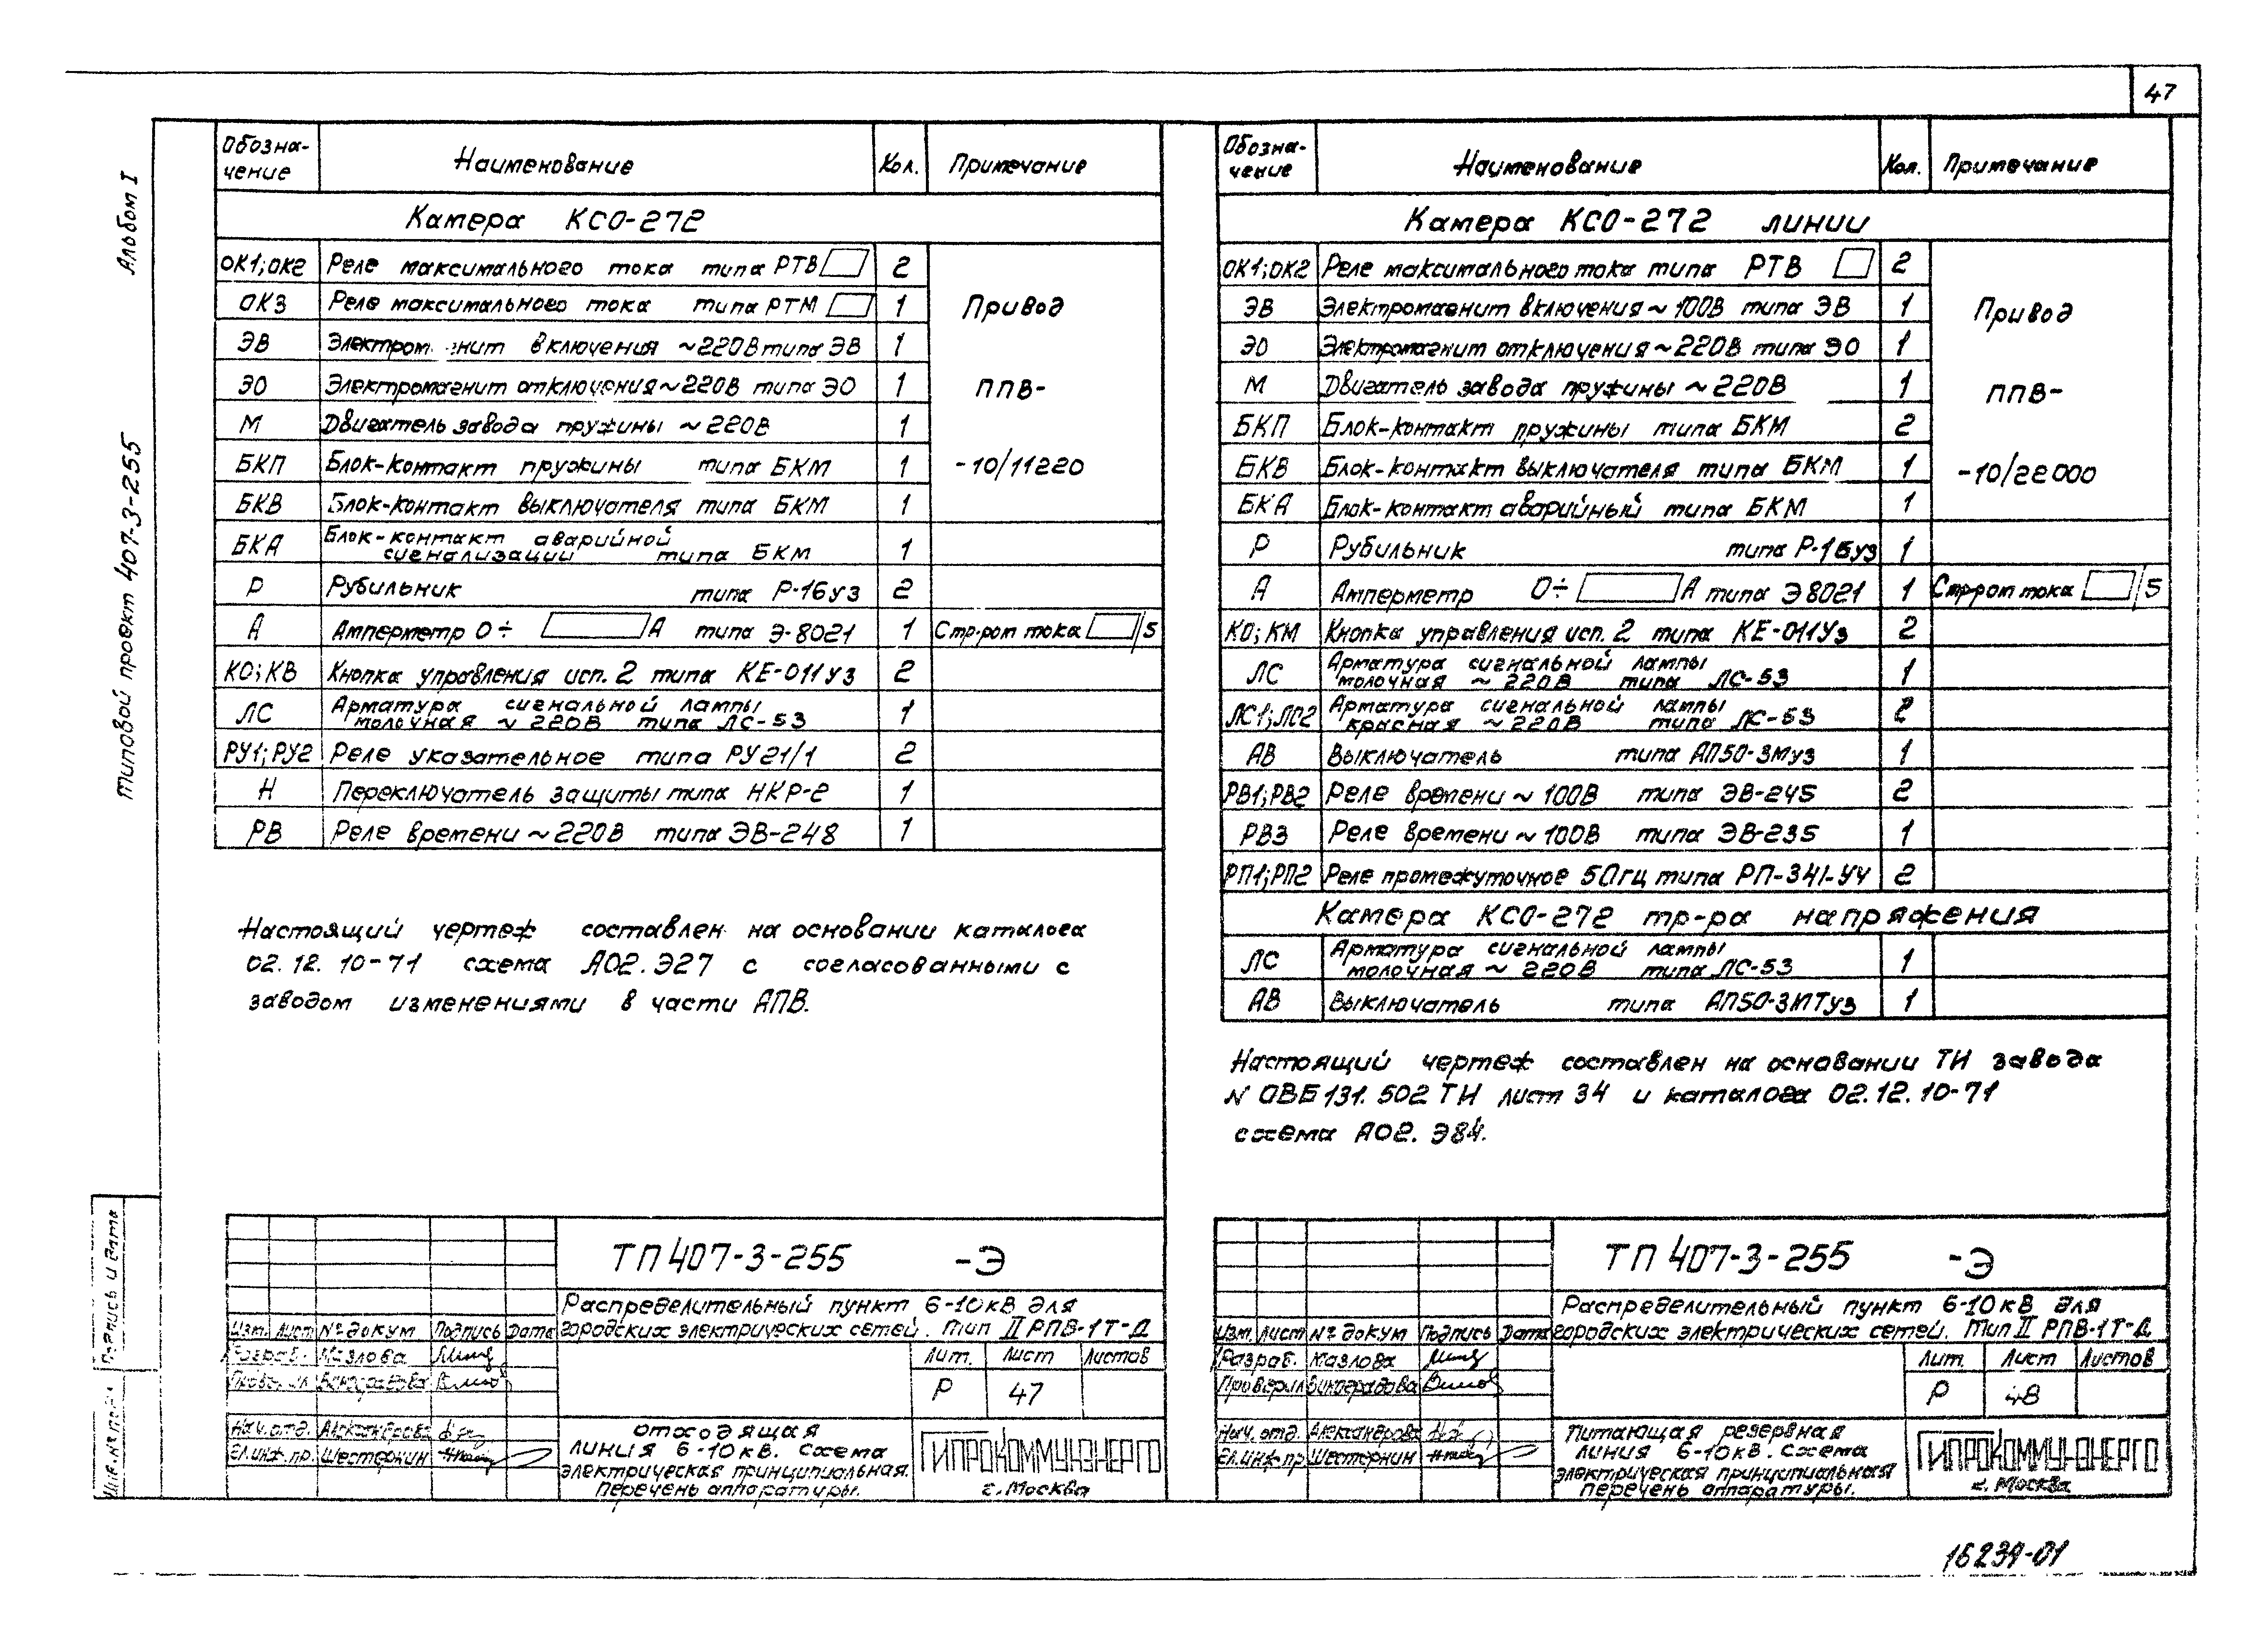 47
Альбом I
Типовой проект 407-3-255
Обозна-
чение
Наименование
Кол.
Примечание
Камера КСО-272
ОК1;ОК2 Реле максимального тока типа РТВ 2
ОК3 Реле максимального тока типа РТМ 1
ЭВ включения ~220В типа ЭВ 1
ЭО Электромагнит отключения ~220В типа ЭО 1
М Двигатель завода пружины ~220В 1
БКП Блок-контакт пружины типа БКМ 1
БКВ Блок-контакт выключателя типа БКМ 1
Привод
ППВ-
-10/11220
БКА Блок-контакт аварийной
сигнализации типа БКМ 1
Р Рубильник типа Р-16У3 2
А Амперметр 0÷ А типа Э-8021 1 Стр-рот тока /5
КО;КВ Кнопка управления исп. 2 типа КЕ-011У3 2
ЛС Арматура сигнальной лампы
молочная ~220В типа ЛС-53 1
РУ1;РУ2 Реле указательное типа РУ21/1 2
Н Переключатель защиты типа НКР-2 1
РВ Реле времени ~220В типа ЭВ-248 1
Настоящий чертеж составлен на основании каталога
02.12.10-71 схема А02.Э27 с согласованными с
заводом изменениями в части АПВ.
ТП 407-3-255 -Э
Распределительный пункт 6-10кВ для
городских электрических сетей. Тип II РПВ-1Т-Д
Изм. Лист № докум Подпись Дата
Разраб. Мазлова
Виноградова
Нач.отд. Александрова
Гл.инж.пр. Шестернин
Лит. Лист Листов
Р 47
Отходящая
линия 6-10кВ. Схема
электрическая принципиальная.
перечень аппаратуры.
ГИПРОКОММУНЭНЕРГО
г.Москва
Обозна-
чение
Наименование
Кол.
Примечание
Камера КСО-272 линии
ОК1;ОК2 Реле максимального тока типа РТВ 2
ЭВ Электромагнит включения ~100В типа ЭВ 1
ЭО Электромагнит отключения ~220В типа ЭО 1
М Двигатель завода пружины ~220В 1
БКП Блок-контакт пружины типа БКМ 2
БКВ Блок-контакт выключателя типа БКМ 1
БКА Блок-контакт аварийный типа БКМ 1
Привод
ППВ-
-10/22000
Р Рубильник типа Р-16У3 1
А Амперметр 0÷ А типа Э8021 1 Стр-рот тока /5
КО;КМ Кнопка управления исп. 2 типа КЕ-011У3 2
ЛС Арматура сигнальной лампы
молочная ~220В типа ЛС-53 1
ЛС1;ЛС2 Арматура сигнальной лампы
красная ~220В типа ЛС-53 2
АВ Выключатель типа АП50-3МУ3 1
РВ1;РВ2 Реле времени ~100В типа ЭВ-245 2
РВ3 Реле времени ~100В типа ЭВ-235 1
РП1;РП2 Реле промежуточное 50гц типа РП-341-У4 2
Камера КСО-272 тр-ра напряжения
ЛС Арматура сигнальной лампы
молочная ~220В типа ЛС-53 1
АВ Выключатель типа АП50-3МТУ3 1
Настоящий чертеж составлен на основании ТИ завода
N ОВБ131.502 ТИ лист 34 и каталога 02.12.10-71
схема А02.Э84.
ТП 407-3-255 -Э
Распределительный пункт 6-10кВ для
городских электрических сетей. Тип II РПВ-1Т-Д
Изм. Лист № докум Подпись Дата
Разраб. Мазлова
Проверил Виноградова
Нач. отд. Александрова
Гл.инж.пр Шестернин
Лит. Лист Листов
Р 48
Питающая резервная
линия 6-10кВ. Схема
электрическая принципиальная
перечень аппаратуры.
ГИПРОКОММУНЭНЕРГО
г. Москва
Подпись и дата
Инв.№ подл.
16239-01